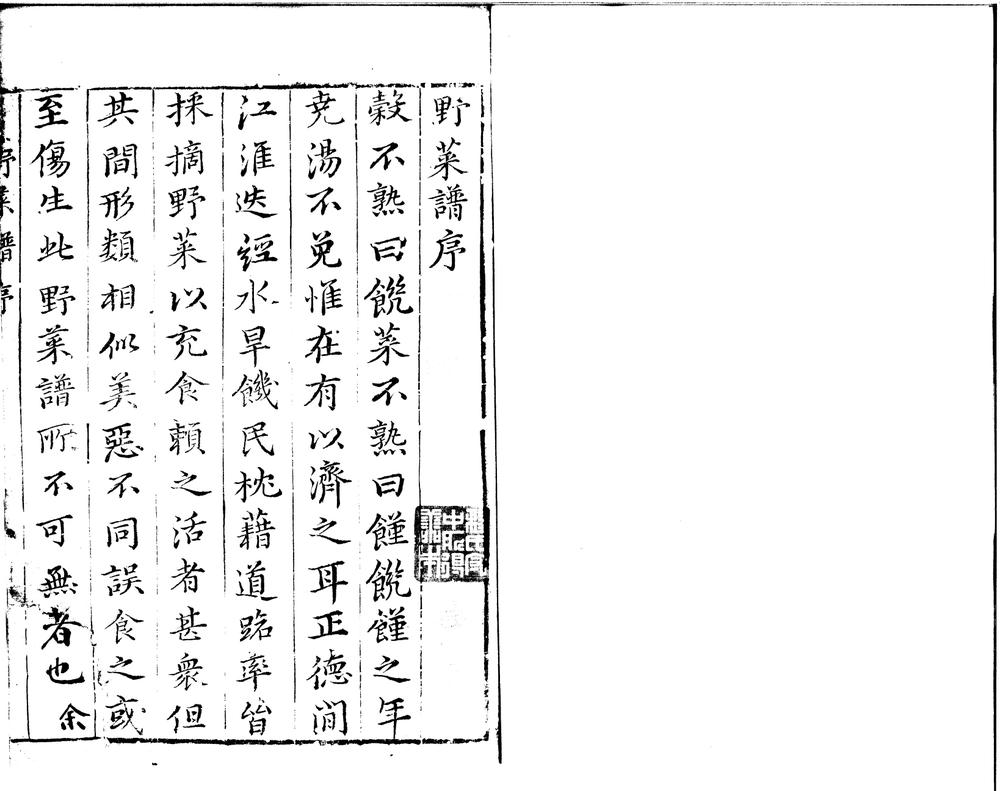 野菜譜序
穀不熟曰饑菜不熟曰饉饑饉之年
堯湯不免惟在有以濟之耳正德間
江淮迭經水旱饑民枕藉道路率皆
採摘野菜以充食賴之活者甚衆但
其間形類相似美惡不同誤食之或
至傷生此野菜譜所不可無者也余
野菜譜序